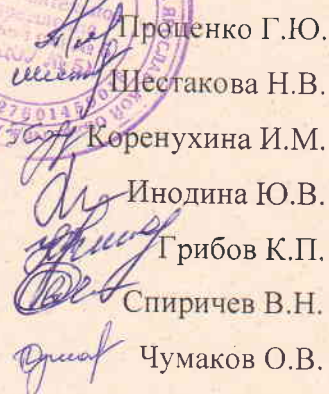 Проценко Г.Ю.
Шестакова Н.В.
Коренухина И.М.
Инодина Ю.В.
Грибов К.П.
Спиричев В.Н.
Чумаков О.В.